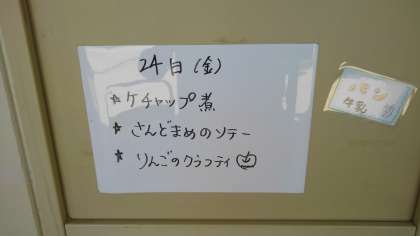 24日(金)
☆ケチャップ煮
☆さんどまめのソテー
☆りんごのクラフティ
牛乳